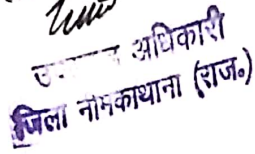 अधिकारी
जिला नीमकाथाना (राज०)